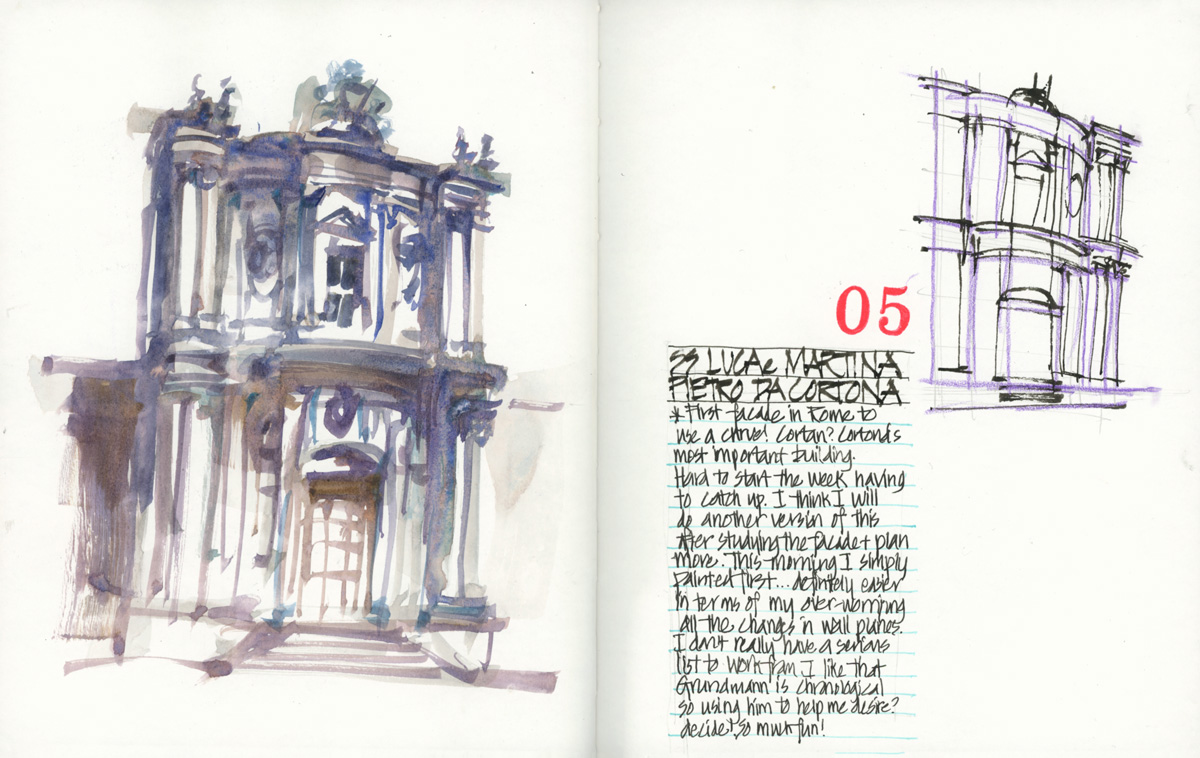 05
SS LUCA e MARTINA
PIETRO DA CORTONA
* First facade in Rome to
use a curve! Cortan? Cortona's
most important building.
Hard to start the week having
to catch up. I think I will
do another version of this
after studying the facade + plan
more. This morning I simply
painted first... definitely easier
in terms of my over-worrying
all the changes in wall planes.
I don't really have a serious
list to work from. I like that
Grundmann is chronological
so using him to help me desire?
decide! So much fun!